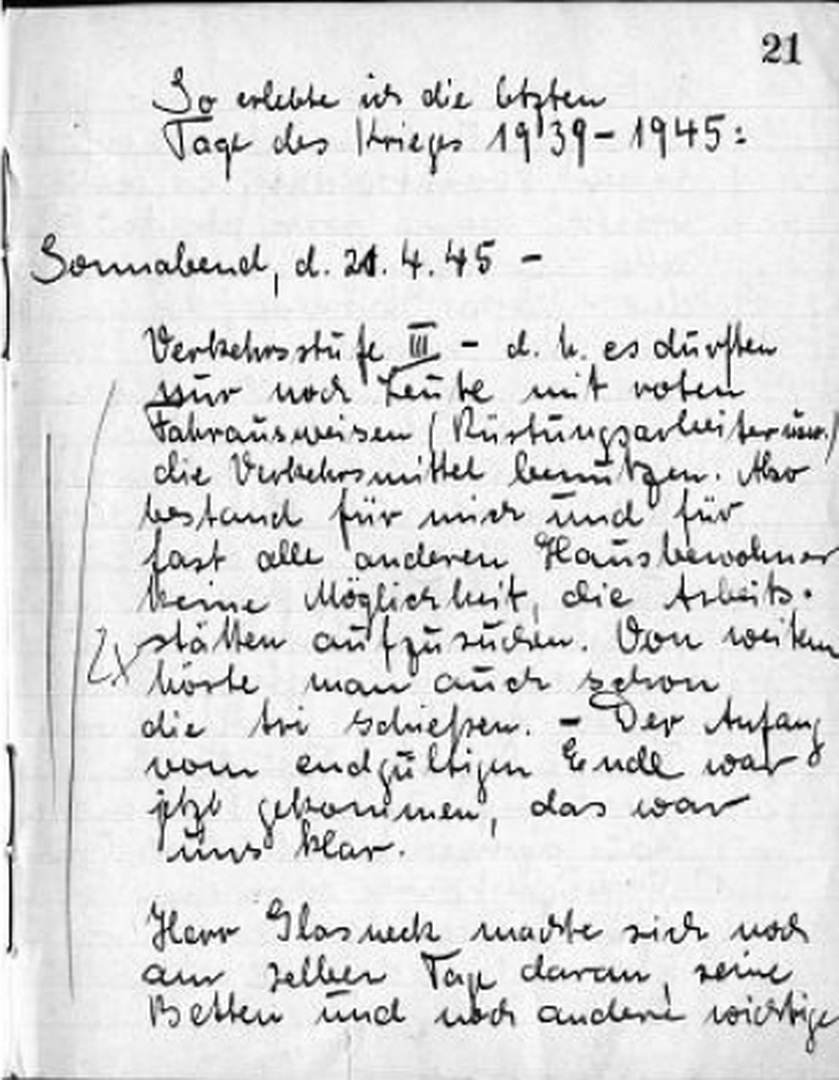 21
So erlebte ich die letzten
Tage des Krieges 1939-1945:
Sonnabend, d. 21.4.45 -
Verkehrsstufe III - d. h. es durften
nur noch Leute mit roten
Fahrausweisen (Rüstungsarbeiter usw.)
die Verkehrsmittel benutzen. Also
bestand für mich und für
fast alle anderen Hausbewohner
keine Möglichkeit, die Arbeits-
stätten aufzusuchen. Von weitem
2x
hörte man auch schon
die Ari schießen. - Der Anfang
vom endgültigen Ende war
jetzt gekommen, das war
uns klar.
Herr Glasneck machte sich noch
am selben Tage daran, seine
Betten und noch andere wichtige